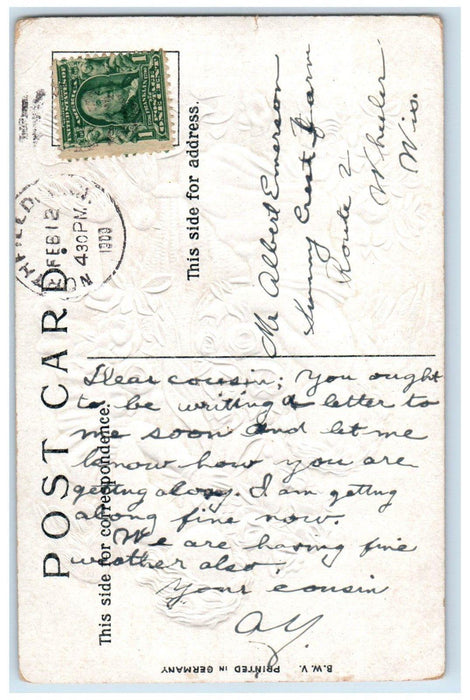 POST CARD.
This side for correspondence.
This side for address.
FEB 12
430 PM
1909
Mr Albert Emerson
Sunny Crest Farm
Route 2
Wheeler
Wis.
Dear cousin; You ought
to be writing a letter to
me soon and let me
know how you are
getting along. I am getting
along fine now.
We are having fine
weather also.
Your cousin
B.W. PRINTED IN GERMANY